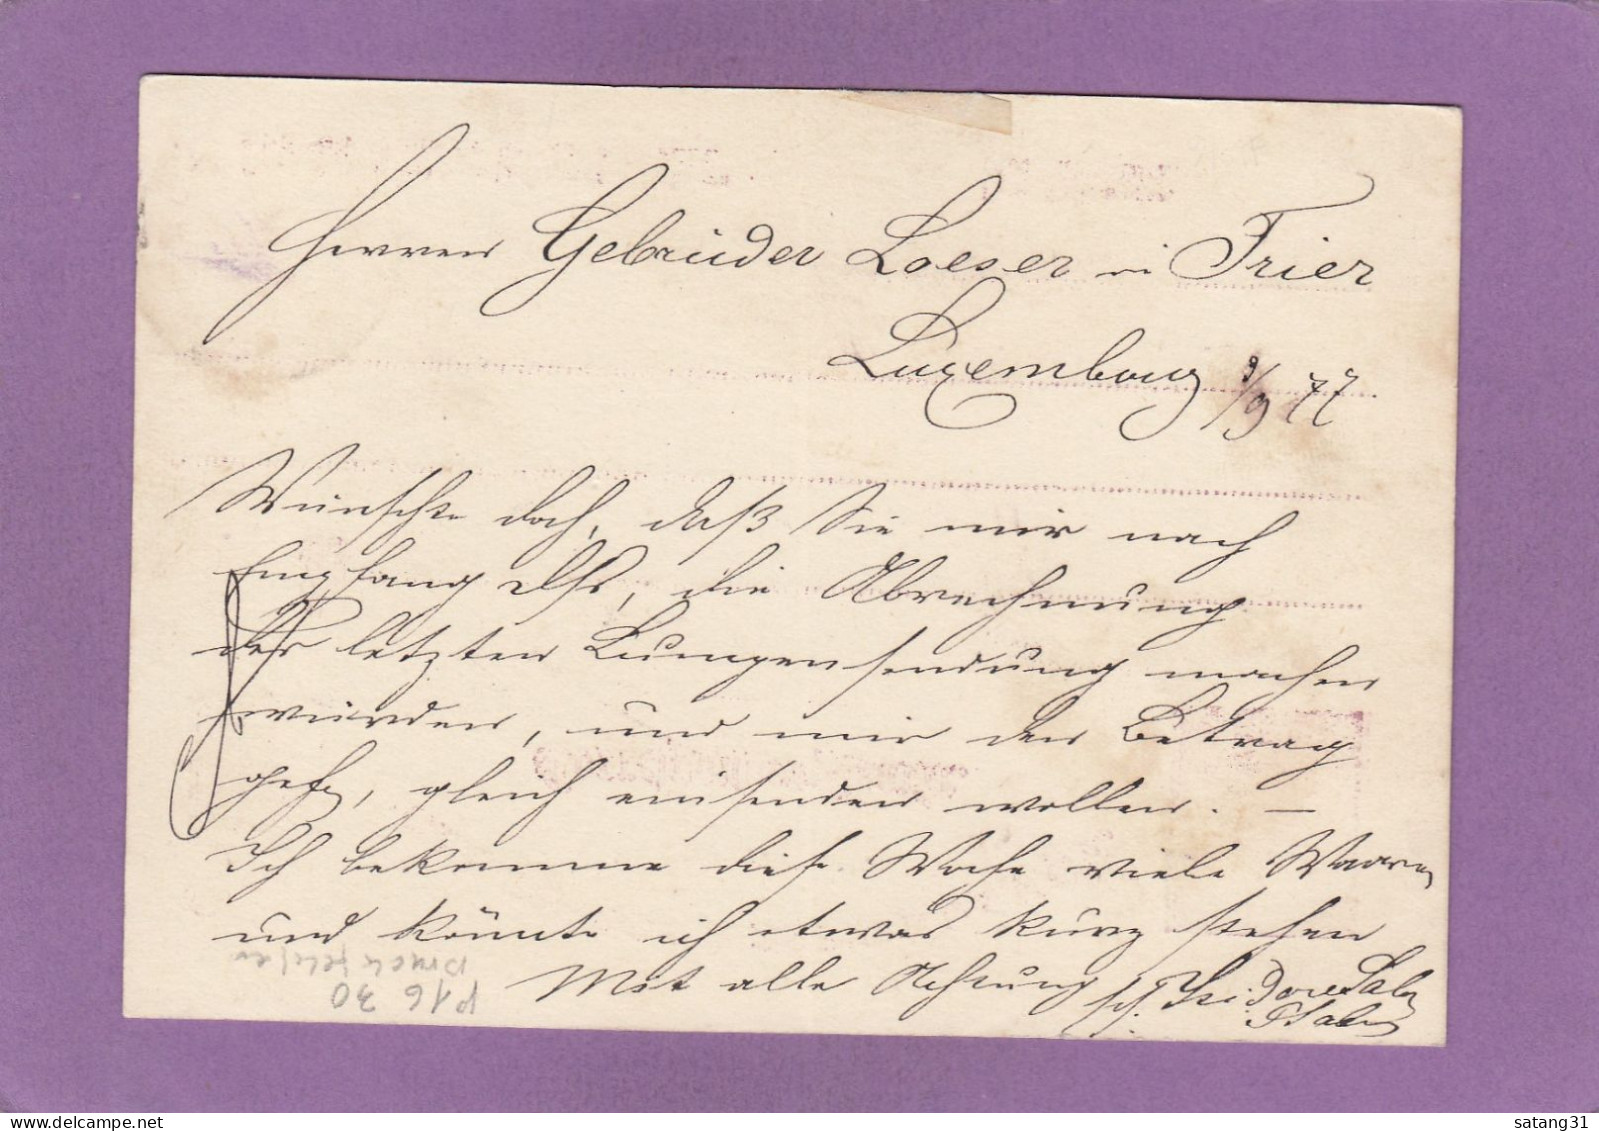 Herren Gebrüder Loeser in Trier
Luxembourg 9/9 77
Wünschte doch, daß Sie mir nach
Empfang dss, die Abrechnung
der letzten Lumpensendung machen
würden, und mir den Betrag
gefl, gleich einsenden wollen. —
Ich bekomme diese Woche viele Waaren
und könnte ich etwas kurz stehen
Mit alle Achtung Isidore
P16 30
Druckfehler
satang31